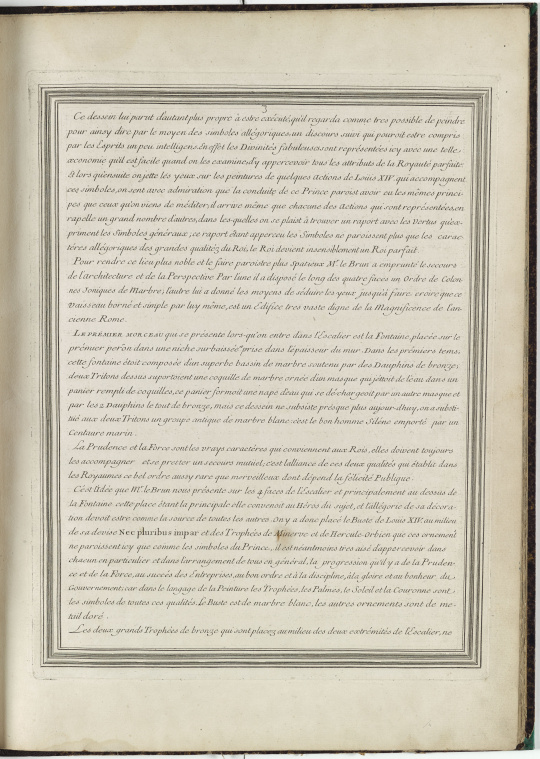 3
Ce dessein lui parut d'autant plus propre à estre exécuté, qu'il regarda comme tres possible de peindre
pour ainsy dire par le moyen des simboles allégoriques, un discours suivi qui pouroit estre compris
par les Esprits un peu intelligens. En effet les Divinités fabuleuses sont représentées icy avec une telle
œconomie qu'il est facile quand on les examine, d'y appercevoir tous les attributs de la Royauté parfaite
Et lors qu'ensuite on jette les yeux sur les peintures de quelques actions de Louis XIV. qui accompagnent
ces simboles, on sent avec admiration que la conduite de ce Prince paroist avoir eu les mêmes princi-
pes que ceux qu'on viens de méditer; il arrive même que chacune des actions qui sont représentées, en
rapelle un grand nombre d'autres, dans les-quelles on se plaist à trouver un raport avec les Vertus qu'ex-
priment les Simboles généraux; ce raport étant apperceu les Simboles ne paroissent plus que les carac-
téres allégoriques des grandes qualitéz du Roi, le Roi devient insensiblement un Roi parfait.
Pour rendre ce lieu plus noble et le faire paroistre plus Spatieux Mr. le Brun a emprunté le secours
de l'architecture et de la Perspective Par l'une il a disposé le long des quatre faces un Ordre de Colon-
nes Ioniques de Marbre; l'autre lui a donné les moyens de séduire les yeux jusqu'à faire croire que ce
vaisseau borné et simple par luy même, est un Edifice tres vaste digne de la Magnificence de l'an-
cienne Rome.
LE PRÉMIER MORCEAU qui se présente lors-qu'on entre dans l'Escalier est la Fontaine placée sur le
prémier peron dans une niche surbaissée prise dans l'épaisseur du mur. Dans les prémiers tems,
cette fontaine étoit composée d'un superbe bassin de marbre soutenu par des Dauphins de bronze;
deux Tritons dessus suportoient une coquille de marbre ornée d'un masque qui jéttoit de l'éau dans un
panier rempli de coquilles, ce panier formoit une nape d'eau qui se déchargeoit par un autre masque et
par les 2 Dauphins le tout de bronze, mais ce dessein ne subsiste présque plus aujour-d'huy, on a substi-
tué aux deux Tritons un groupe antique de marbre blanc: c'est le bon homme Siléne emporté par un
Centaure marin.
La Prudence et la Force sont les vrays caractéres qui conviennent aux Rois, elles doivent toujours
les accompagner et se pretter un secours mutuel; c'est l'alliance de ces deux qualités qui établit dans
les Royaumes ce bel ordre aussy rare que merveilleux dont dépend la félicité Publique.
C'est l'Idée que Mr. le Brun nous présente sur les 4 faces de l'Escalier et principalement au dessus de
la Fontaine cette place étant la principale elle convenoit au Héros du sujet, et l'allégorie de sa décora-
tion devoit estre comme la source de toutes les autres. On y a donc placé le Buste de Louis XIV. au milieu
de sa devise Nec pluribus impar et des Trophées de Minerve et de Hercule. Or bien que ces ornement
ne paroissent icy que comme les simboles du Prince, il est neantmoins tres aisé d'appercevoir dans
chacun en particulier et dans l'arrangement de tous en général, la progression qu'il y a de la Pruden-
ce et de la Force, au succés des Entreprises, au bon ordre et à la discipline, à la gloire et au bonheur du
Gouvernement; car dans le langage de la Peinture les Trophées, les Palmes, le Soleil et la Couronne sont
les simboles de toutes ces qualités. Le Buste est de marbre blanc, les autres ornements sont de me-
tail doré.
Les deux grands Trophées de bronze qui sont placez au milieu des deux extrémités de l'Escalier, ne